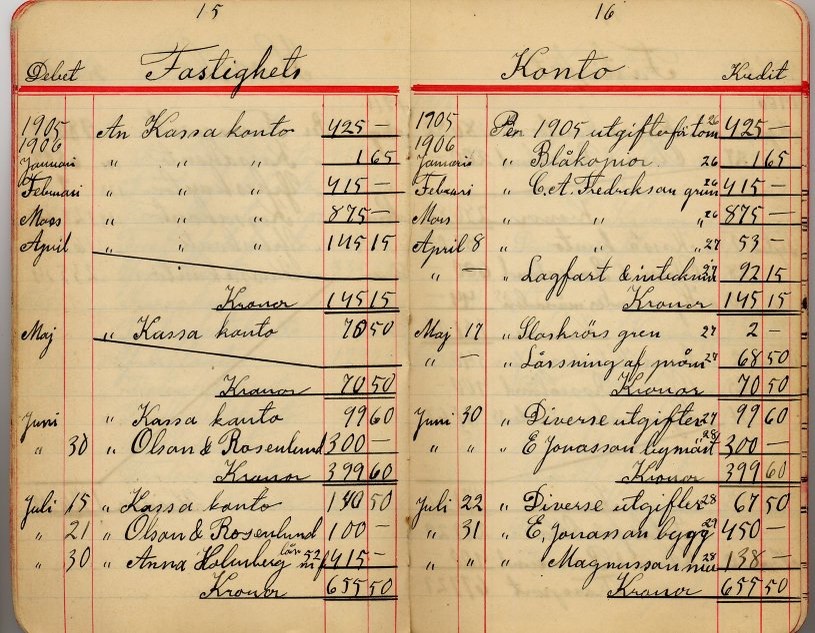 15
Debet Fastighets
1905 An Kassa konto 425 —
1906
Januari " " " 1 65
Februari " " " 415 —
Mars " " " 875 —
April " " " 145 15
Kronor 145 15
Maj " Kassa konto 70 50
Kronor 70 50
Juni " Kassa konto 99 60
" 30 " Olson & Rosenlund 300 —
Kronor 399 60
Juli 15 " Kassa konto 140 50
" 21 " Olson & Rosenlund 100 —
" 30 " Anna Holmberg 52 415 —
Kronor 655 50
16
Konto Kredit
1905 Per 1905 utgifter 26 425 —
1906
Januari " Blåkopior 26 1 65
Februari " C. A. Fredrikson grun 26 415 —
Mars " " " 26 875 —
April 8 " " " 27 53 —
" — " Lagfart & intecknin 27 92 15
Kronor 145 15
Maj 17 " gren 27 2 —
" — " Låssning af 27 68 50
Kronor 70 50
Juni 30 " Diverse utgifter 27 99 60
" " " E Jonasson 28 300 —
Kronor 399 60
Juli 22 " Diverse utgifter 28 67 50
" 31 " E, Jonasson bygg 29 450 —
" " " Magnusson 28 138 —
Kronor 655 50